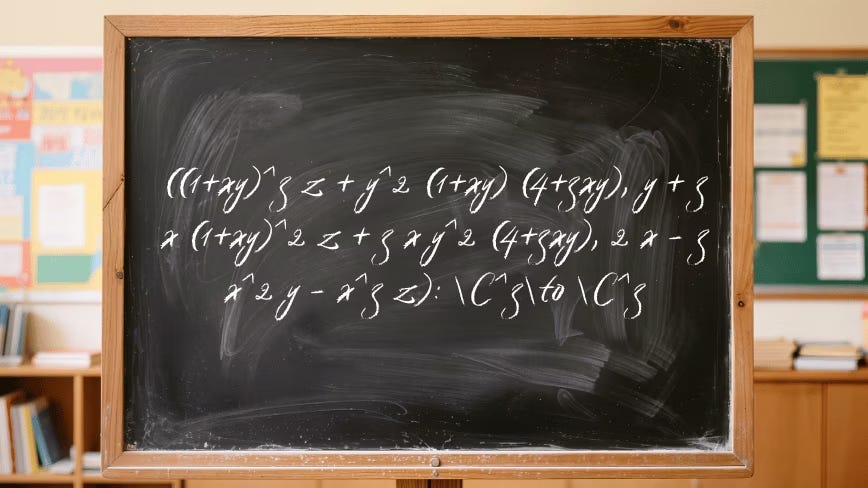 ((1+xy)^3 z + y^2 (1+xy) (4+3xy), y + 3
x (1+xy)^2 z + 3 x y^2 (4+3xy), 2 x - 3
x^2 y - x^3 z): \C^3\to \C^3